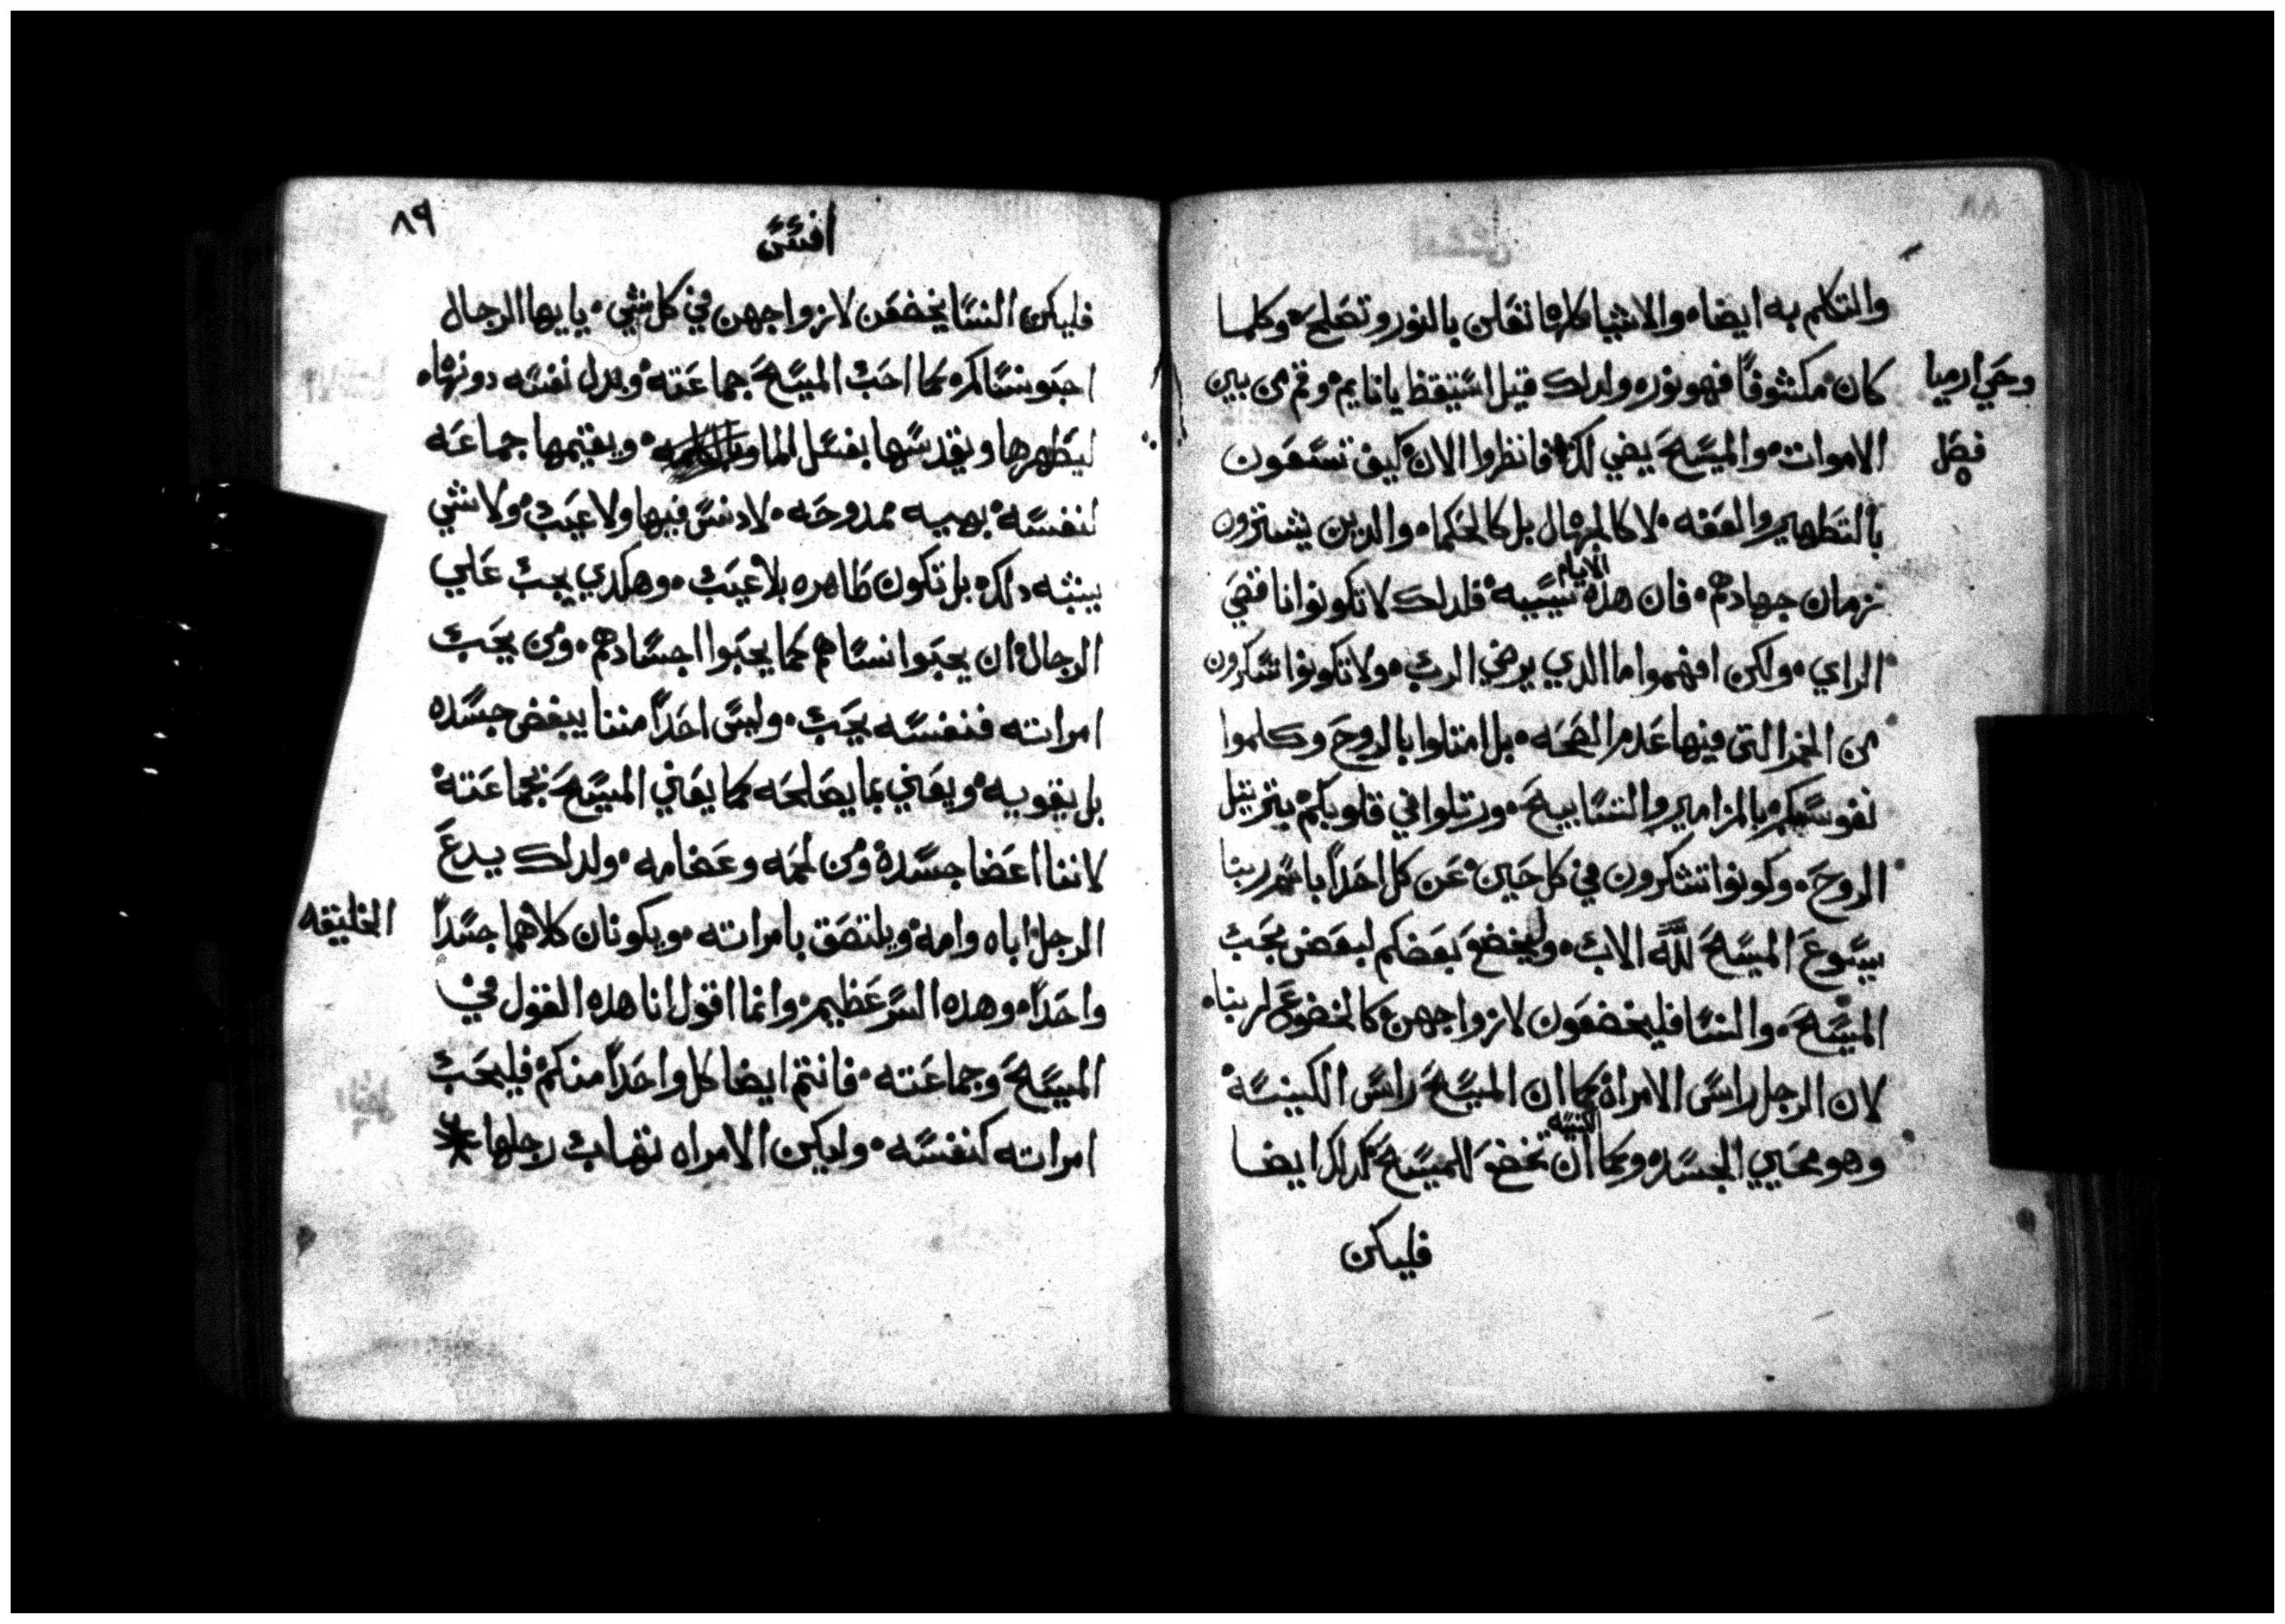 والتكلم به ايضاه والاشيا كلها تعلن بالنور وتصلح وكلما
كان مكشوفاً فهو نوره ولدلك قيل استيقظ يا نايم وقم من بين
وحي ارميا
الاموات والمسيح يضي لك فانظروا الان كيف تسعون
فصل ٥
بالتطهير والعفه لا كالجهال بل كالحكماه والدين يشترون
زمان جهادهم فان هذه الايام سييه فلدلك لا تكونوا ناقصي
الراي ولكن افهموا ما الدي يرضي الرب ولا تكونوا تسكرون
من الخمر التي فيها عدم الصحه بل امتلوا بالروح وكلموا
نفوسكم بالمزامير والتسابيح ورتلوا في قلوبكم بترتيل
الروح وكونوا تشكرون في كل حين عن كل احداً باسم ربنا
يسوع المسيح لله الاب وليخضع بعضكم لبعض بحب
المسيح والنسا فليخضعون لازواجهن كالخضوع لربناه
لان الرجل راس الامراه كما ان المسيح راس الكنيسة
وهو محيي الجسده وكما ان الكنيسه تخضع للمسيح كدلك ايضا
فليكن
٨٩
افسس
فليكن النسا يخضعن لازواجهن في كل شي يا يها الرجال
احبوا نساكم كما احب المسيح جماعته وبدل نفسه دونهاه
ليطهرها ويقدسها بغسل الما وبالكلمه ويقيمها جماعه
لنفسه بهيه ممدوحه لا دنس فيها ولا عيب ولا شي
يشبه دلك بل تكون طاهره بلا عيب وهكدي يجب علي
الرجال ان يحبوا نساهم كما يحبوا اجسادهم ومن يحب
امراته فنفسه يحب وليس احداً مننا يبغض جسده
بل يقويه ويعني بما يصالحه كما يعني المسيح بجماعته
لاننا اعضا جسده ومن لحمه وعضامه ولدلك يدع
الرجل اباه وامه ويلتصق بامراته ويكونان كلاهما جسداً
الخليقه
واحداً وهده السر عظيم وانما اقول انا هده القول في
المسيح وجماعته فانتم ايضا كل واحداً منكم فليحب
امراته كنفسه وليكن الامراه تهاب رجلها